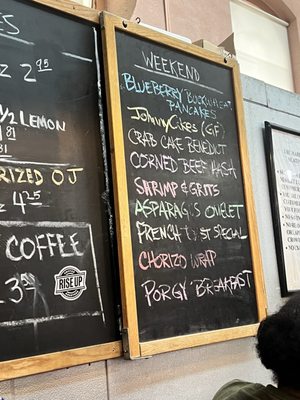 ES
2 2.95
1/2 LEMON
81
RIZED OJ
4.25
COFFEE
3.25
RISE UP
WEEKEND
BLUEBERRY BUCKWHEAT
PANCAKES
JOHNNYCAKES (GF)
CRAB CAKE BENEDICT
CORNED BEEF HASH
SHRIMP & GRITS
ASPARAGUS OMELET
FRENCH TOAST SPECIAL
CHORIZO WRAP
PORGY BREAKFAST